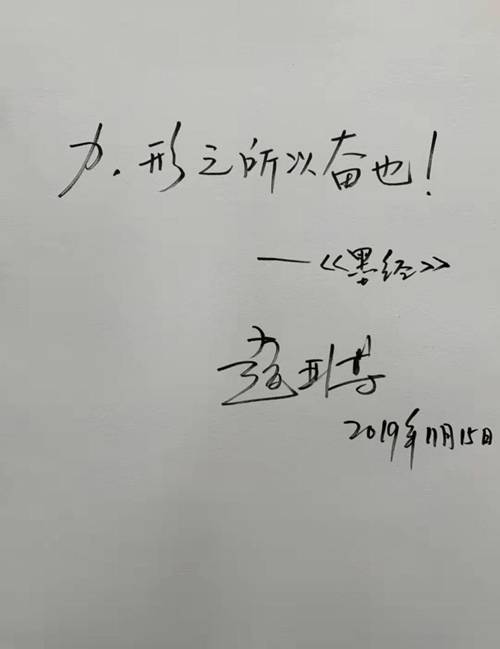 力,形之所以奋也!
——《墨经》
2019年11月15日